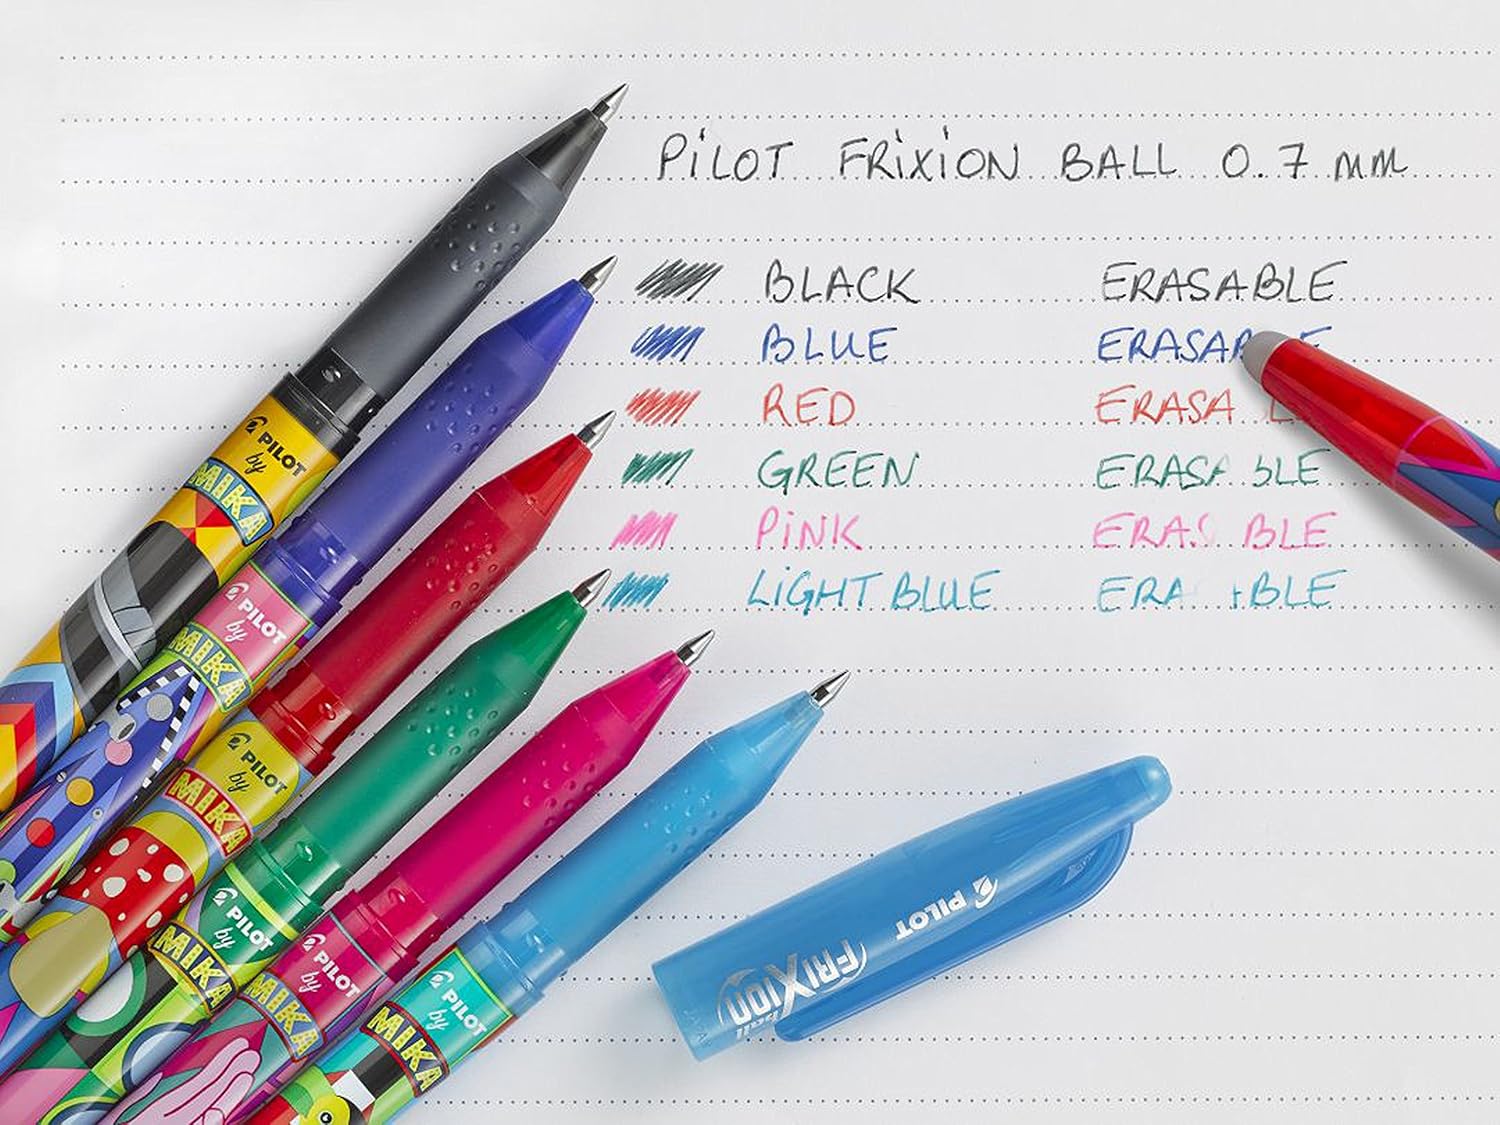 PiLOT FRiXiON BALL 0.7 mm
BLACK ERASABLE
BLUE ERASAB E
RED ERASA L
GREEN ERASA BLE
PiNK ERAS BLE
LiGHT BLUE ERA BLE
PILOT
by
MIKA
PILOT
by
MIKA
PILOT
by
MIKA
PILOT
by
MIKA
PILOT
by
MIKA
PILOT
by
MIKA
PILOT
FRIXION
ball